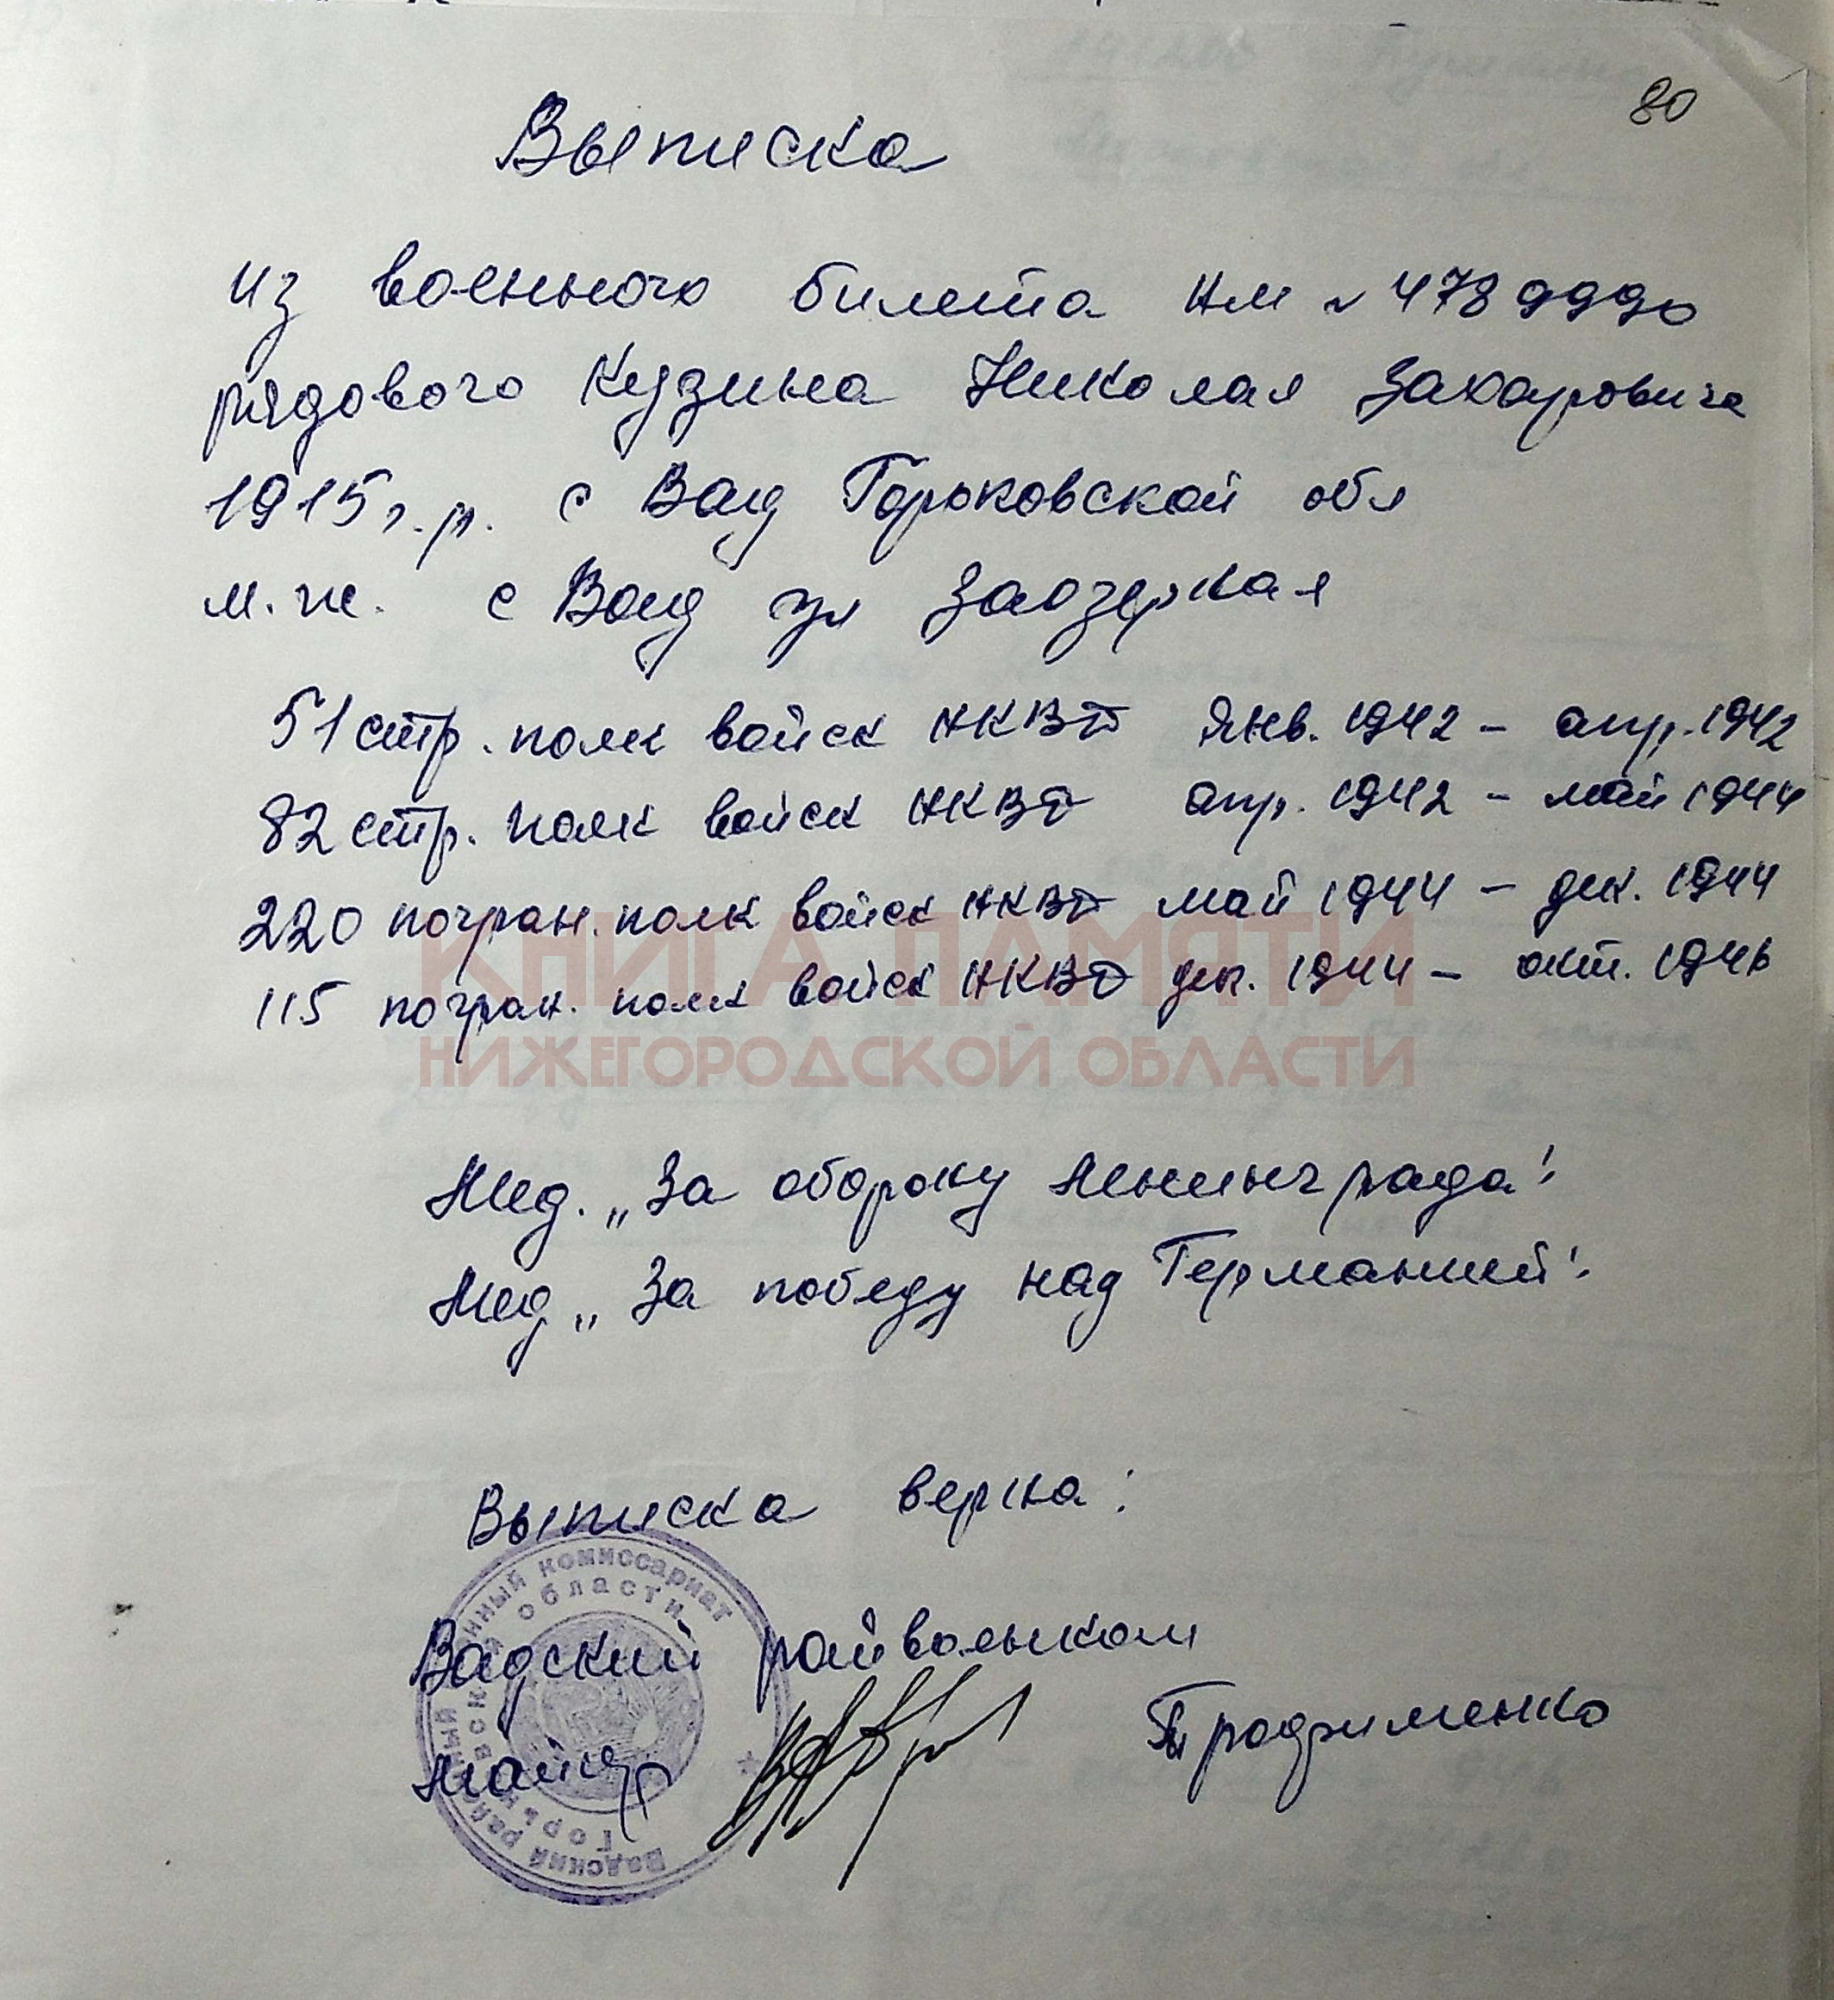 80
Выписка
из военного билета НМ № 4789990
рядового Кузина Николая Захаровича
1915 г.р. с Вад Горьковской обл
м.ж. с Вад ул Заозерная
51 стр. полк войск НКВД Янв. 1942 – апр. 1942
82 стр. полк войск НКВД апр. 1942 – май 1944
220 погран. полк войск НКВД май 1944 – дек. 1944
115 погран. полк войск НКВД дек. 1944 – окт. 1946
КНИГА ПАМЯТИ
НИЖЕГОРОДСКОЙ ОБЛАСТИ
Мед. „За оборону Ленинграда"
Мед „За победу над Германией"
Выписка верна:
Вадский райвоенком
майор
Вадский районный военный комиссариат
Горьковской области